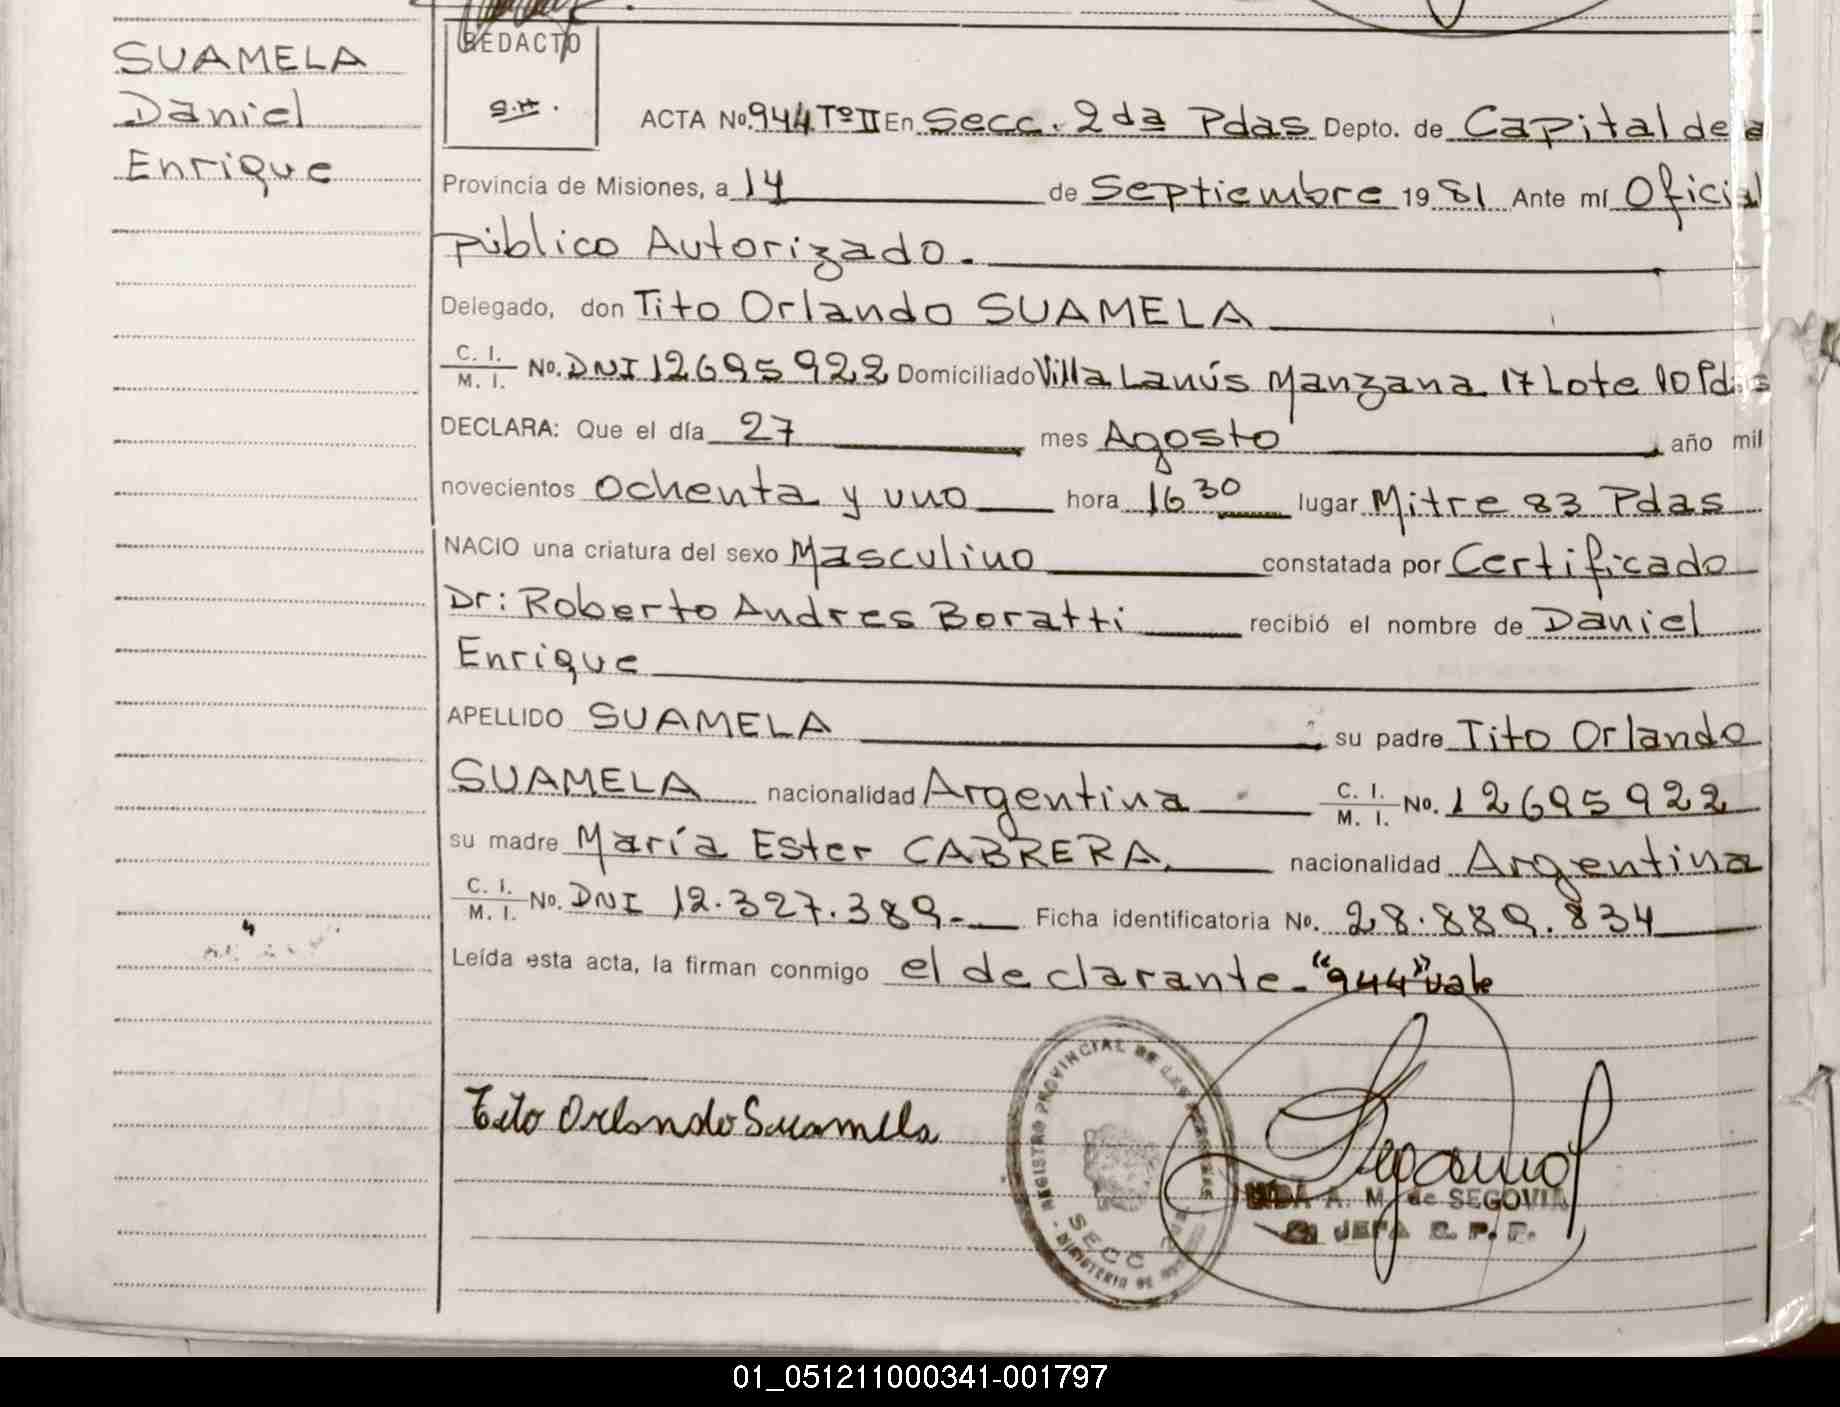 SUAMELA
Daniel
Enrique
REDACTO
S.H.
ACTA No. 944 Tº II En Secc. 2da Pdas Depto. de Capital de a
Provincia de Misiones, a 14 de Septiembre 19 81 Ante mí Oficial
público Autorizado.
Delegado, don Tito Orlando SUAMELA
C. I. / M. I. No. DNI 12695922 Domiciliado Villa Lanús Manzana 17 Lote 10 Pdas
DECLARA: Que el día 27 mes Agosto año mil
novecientos ochenta y uno hora 16 30 lugar Mitre 83 Pdas
NACIO una criatura del sexo Masculino constatada por Certificado
Dr: Roberto Andres Boratti recibió el nombre de Daniel
Enrique
APELLIDO SUAMELA su padre Tito Orlando
SUAMELA nacionalidad Argentina C. I. / M. I. No. 12695922
su madre María Ester CABRERA. nacionalidad Argentina
C. I. / M. I. No. DNI 12.327.389.- Ficha identificatoria No. 28.889.834
Leída esta acta, la firman conmigo el declarante. "944" vale
Tito Orlando Suamela
REGISTRO PROVINCIAL DE LAS PERSONAS
SECC
A. M. de SEGOVIA
JEFA
01_051211000341-001797